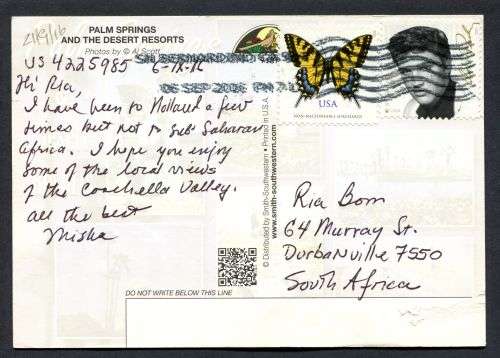 21/9/16
PALM SPRINGS
AND THE DESERT RESORTS
Photos by © Al Scott
US 4225985 6-IX-16
Hi Ria,
I have been to Holland a few
times but not to Sub Saharan
Africa. I hope you enjoy
some of the local views
of the Coachella Valley.
All the best
Misha
SAN BERNARDINO
06 SEP 2016 PM
USA
NON-MACHINEABLE SURCHARGE
© Distributed by Smith-Southwestern • Printed in U.S.A.
www.smith-southwestern.com
Ria Bom
64 Murray St.
Durbanville 7550
South Africa
DO NOT WRITE BELOW THIS LINE